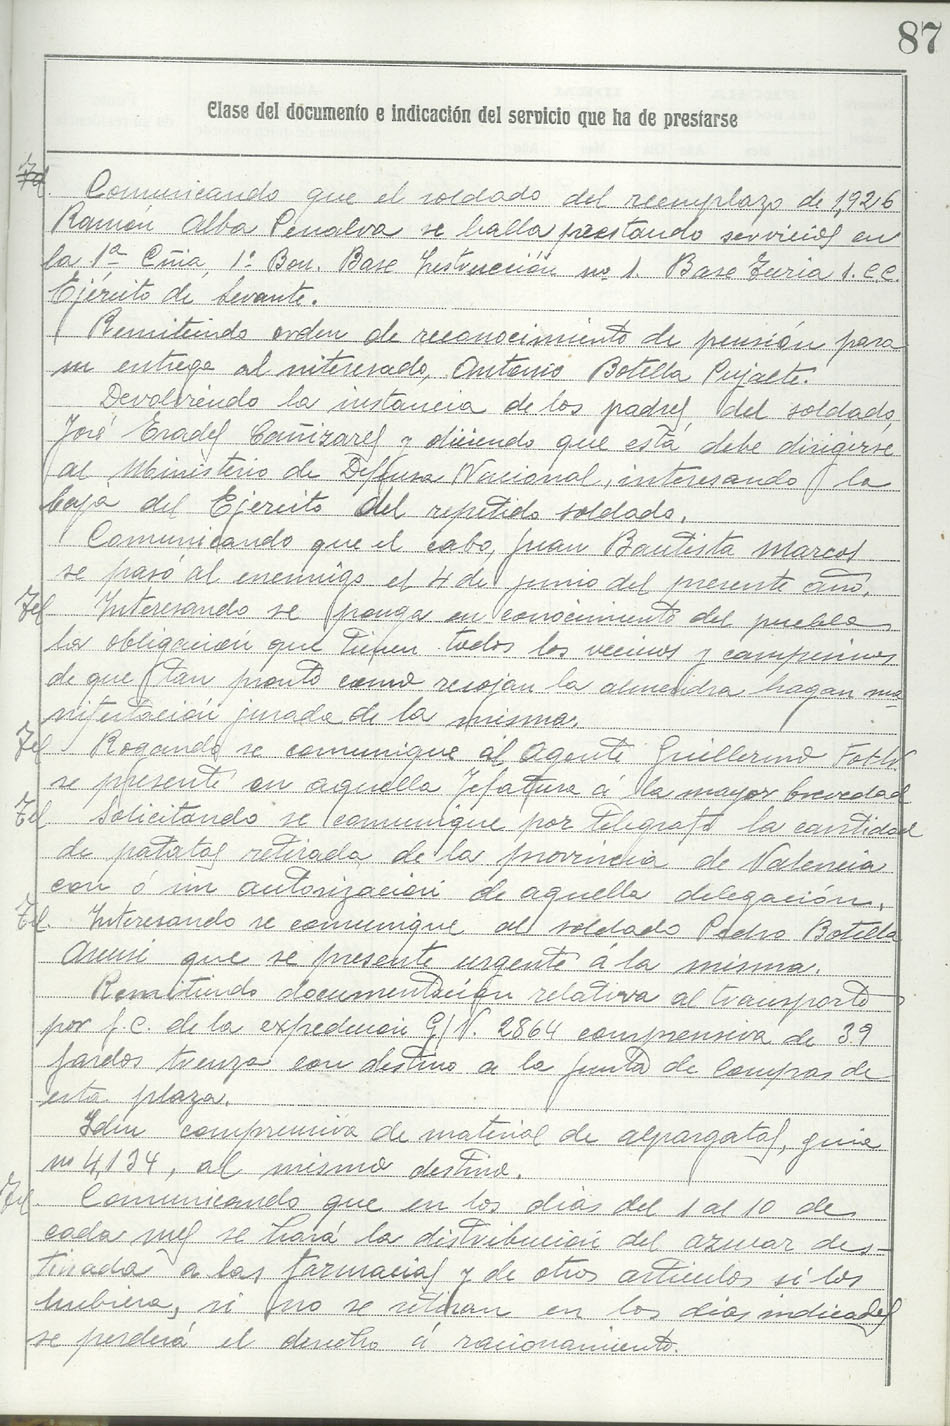 87
Clase del documento e indicación del servicio que ha de prestarse
Tel. Comunicando que el soldado del reemplazo de 1,926
Ramón Alba Penalva se halla prestando servicios en
la 1ª Cñia, 1º Bon. Base Instrucción nº 1. Base Turia 1. C.C.
Ejército de Levante.
Remitiendo orden de reconocimiento de pensión para
su entrega al interesado, Antonio Botella Pujalte.
Devolviendo la instancia de los padres del soldado
José Erades Cañizares y diciendo que esta debe dirigirse
al Ministerio de Deffensa Nacional, interesando la
baja del Ejército del repetido soldado.
Comunicando que el cabo, Juan Bautista Marcos
se pasó al enemigo el 4 de junio del presente año.
Tel Interesando se ponga en conocimiento del pueblo
la obligación que tienen todos los vecinos y campesinos
de que tan pronto como recojan la almendra hagan ma-
nifestación jurada de la misma.
Tel Rogando se comunique al Agente Guillermo
se presente en aquella Jefatura á la mayor brevedad
Tel Solicitando se comunique por telegrafo la cantidad
de patatas retirada de la provincia de Valencia
con ó sin autorización de aquella delegación.
Tel. Interesando se comunique al soldado Pedro Botella
Asensi que se presente urgente á la misma.
Remitiendo documentación relativa al transporte
por f.c. de la expedición G/V. 2864 comprensiva de 39
fardos trenza con destino a la Junta de Compras de
esta plaza.
Idem comprensiva de material de alpargatas, guia
nº 4,134, al mismo destino.
Tel. Comunicando que en los dias del 1 al 10 de
cada mes se hará la distribución del azucar des-
tinada a las farmacias y de otros articulos si los
hubiera, si no se retiran en los dias indicados
se perderá el derecho á racionamiento.